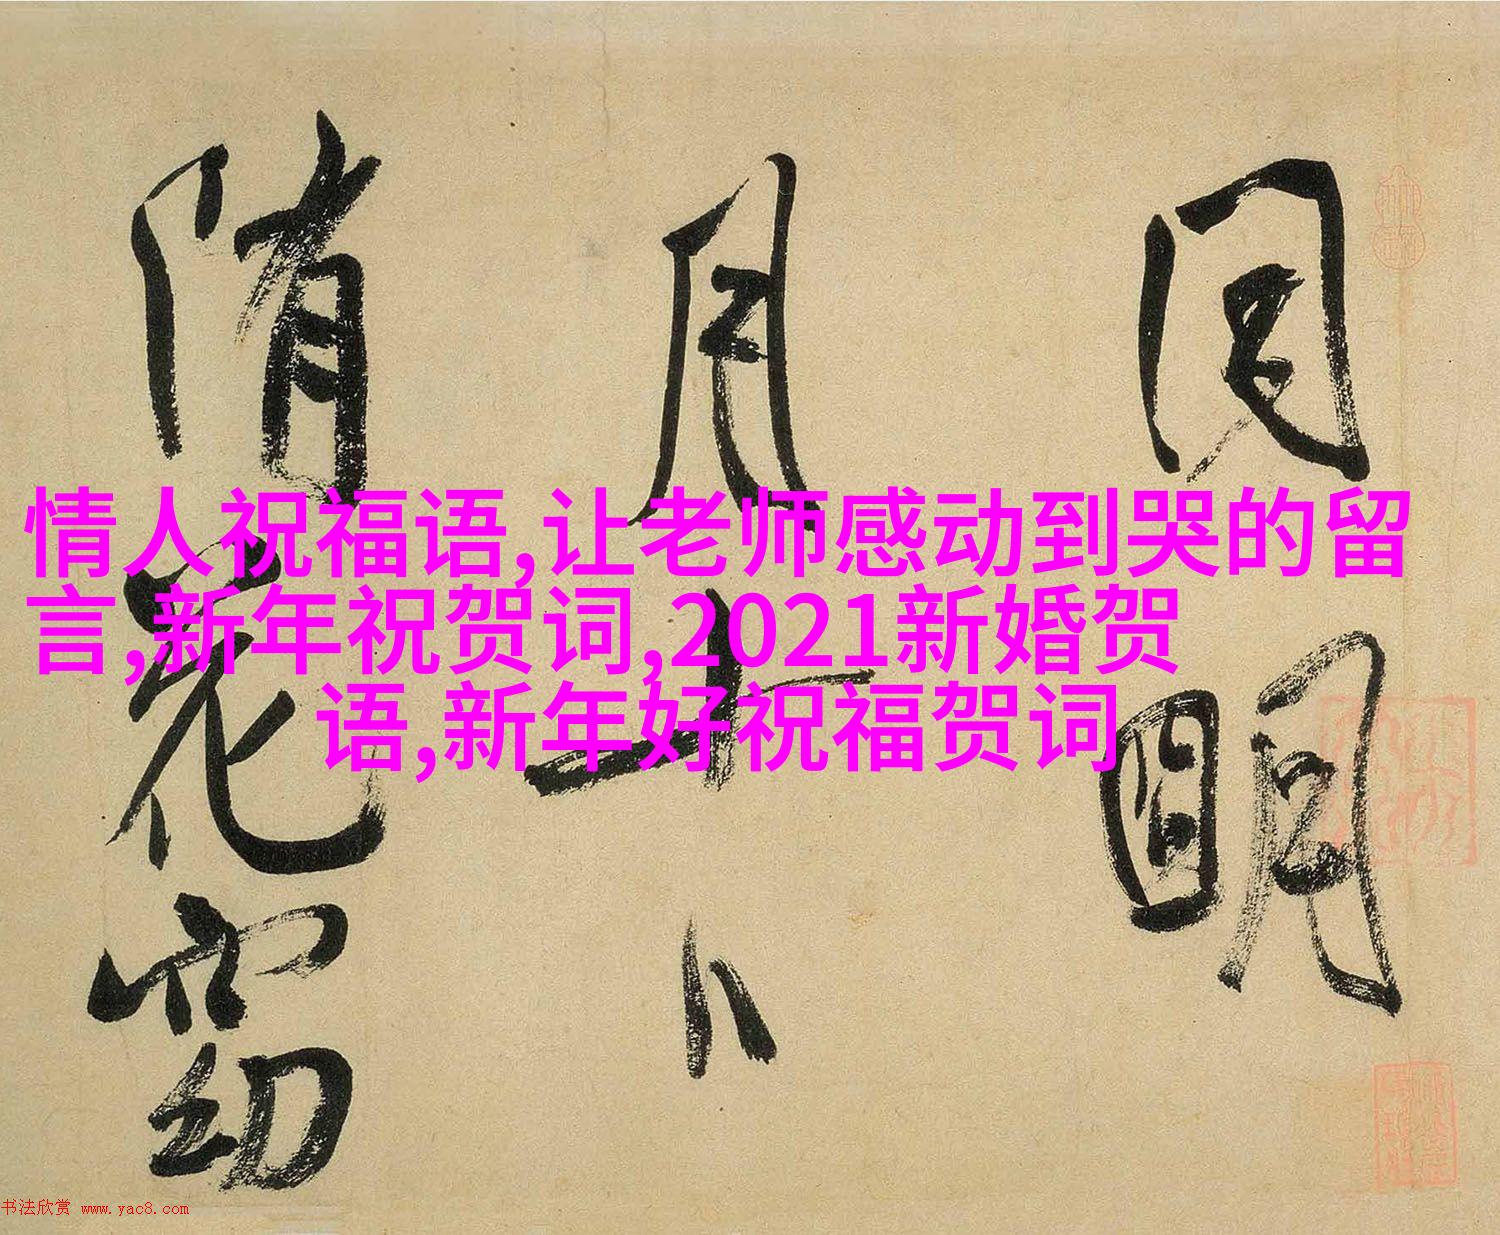 情人祝福语,让老师感动到哭的留
言,新年祝贺词,2021新婚贺
语,新年好祝福贺词
明
月十八
随花
书法欣赏 www.yac8.com